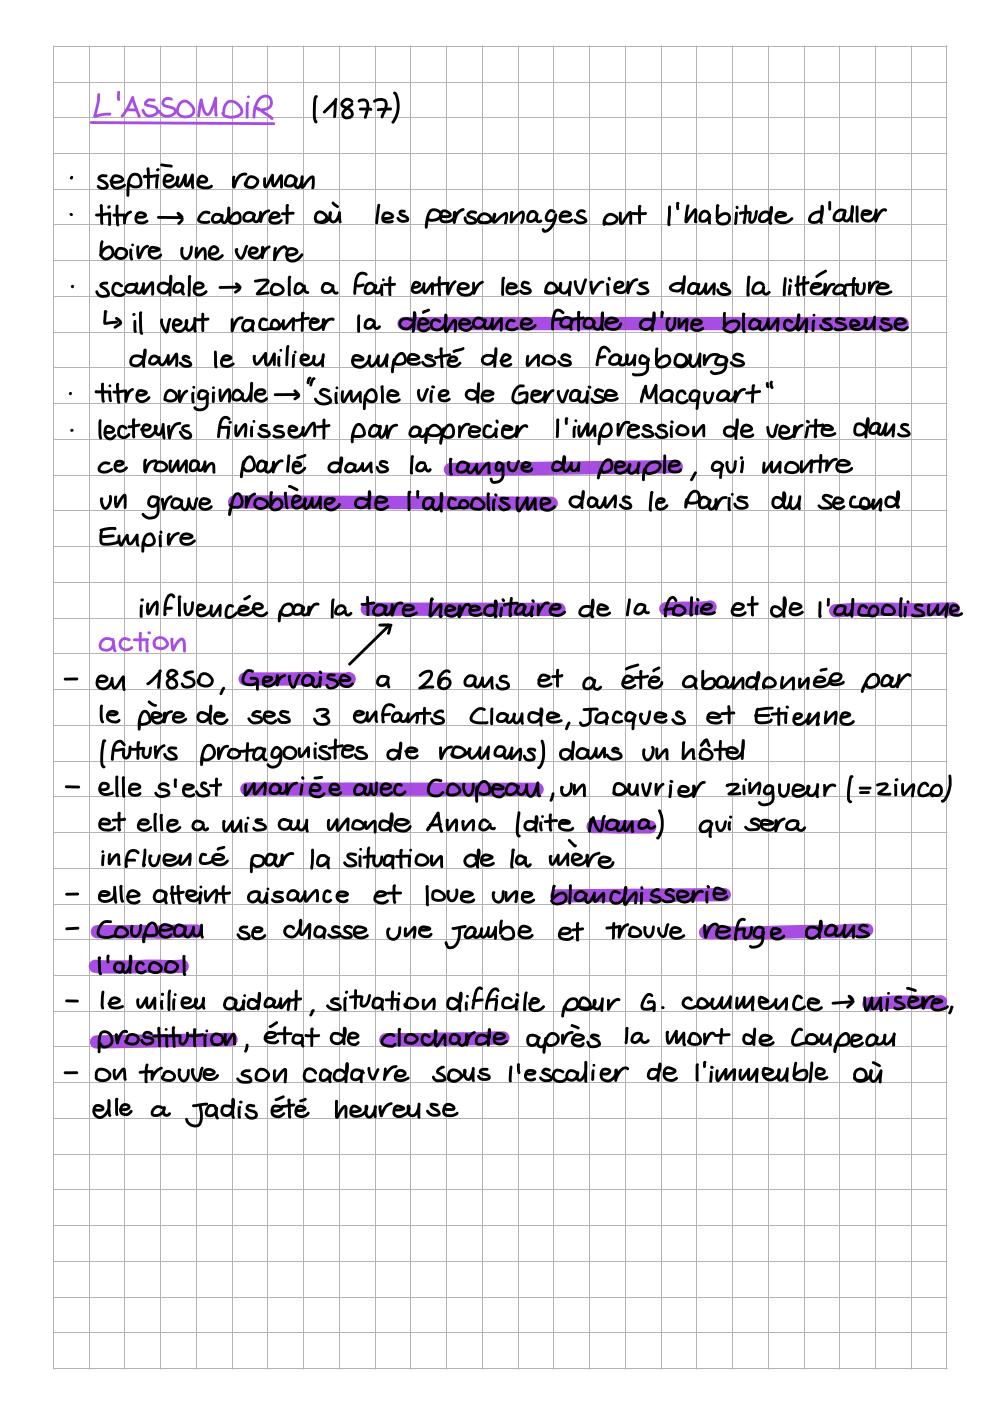 L'ASSOMOIR (1877)
· septième roman
· titre → cabaret où les personnages ont l'habitude d'aller
boire une verre
· scandale → Zola a fait entrer les ouvriers dans la littérature
↳ il veut raconter la décheance fatale d'une blanchisseuse
dans le milieu empesté de nos faugbourgs
· titre originale → "Simple vie de Gervaise Macquart"
· lecteurs finissent par apprecier l'impression de verite dans
ce roman parlé dans la langue du peuple, qui montre
un grave problème de l'alcoolisme dans le Paris du second
Empire
influencée par la tare hereditaire de la folie et de l'alcoolisme
action
- en 1850, Gervaise a 26 ans et a été abandonnée par
le père de ses 3 enfants Claude, Jacques et Etienne
(futurs protagonistes de romans) dans un hôtel
- elle s'est mariée avec Coupeau, un ouvrier zingueur (=zinco)
et elle a mis au monde Anna (dite Nana) qui sera
influencé par la situation de la mère
- elle atteint aisance et loue une blanchisserie
- Coupeau se chasse une jambe et trouve refuge dans
l'alcool
- le milieu aidant, situation difficile pour G. commence → misère,
prostitution, état de clocharde après la mort de Coupeau
- on trouve son cadavre sous l'escalier de l'immeuble où
elle a jadis été heureuse